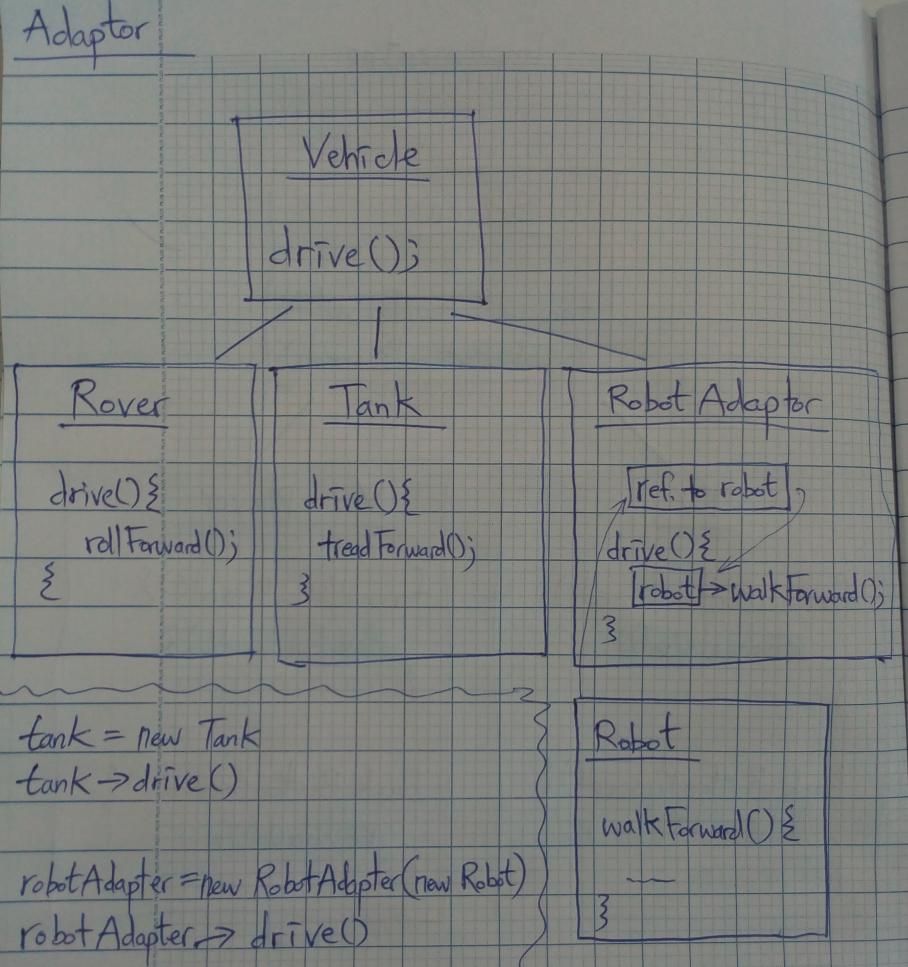 Adaptor
Vehicle
drive();
Rover
drive(){
rollForward();
{
Tank
drive(){
treadForward();
}
Robot Adaptor
ref. to robot
drive(){
robot→walkForward();
}
tank = new Tank
tank→drive()
robotAdapter=new RobotAdapter(new Robot)
robotAdapter→drive()
Robot
walkForward(){
}